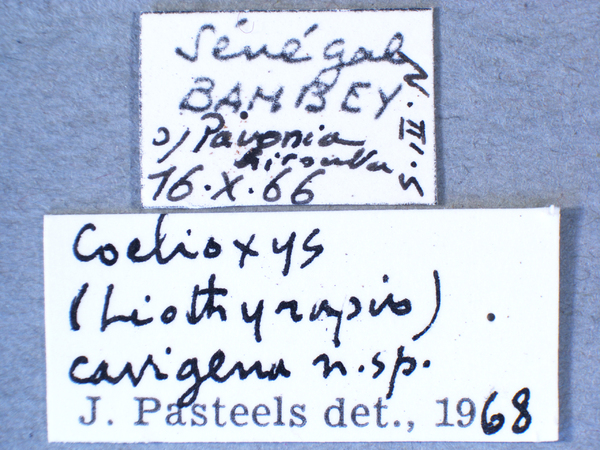 Sénégal
BAMBEY
s/ Pavonia
hirsuta
16.X.66
Coelioxys
(Liothyrapis)
cavigena n.sp.
J. Pasteels det., 1968